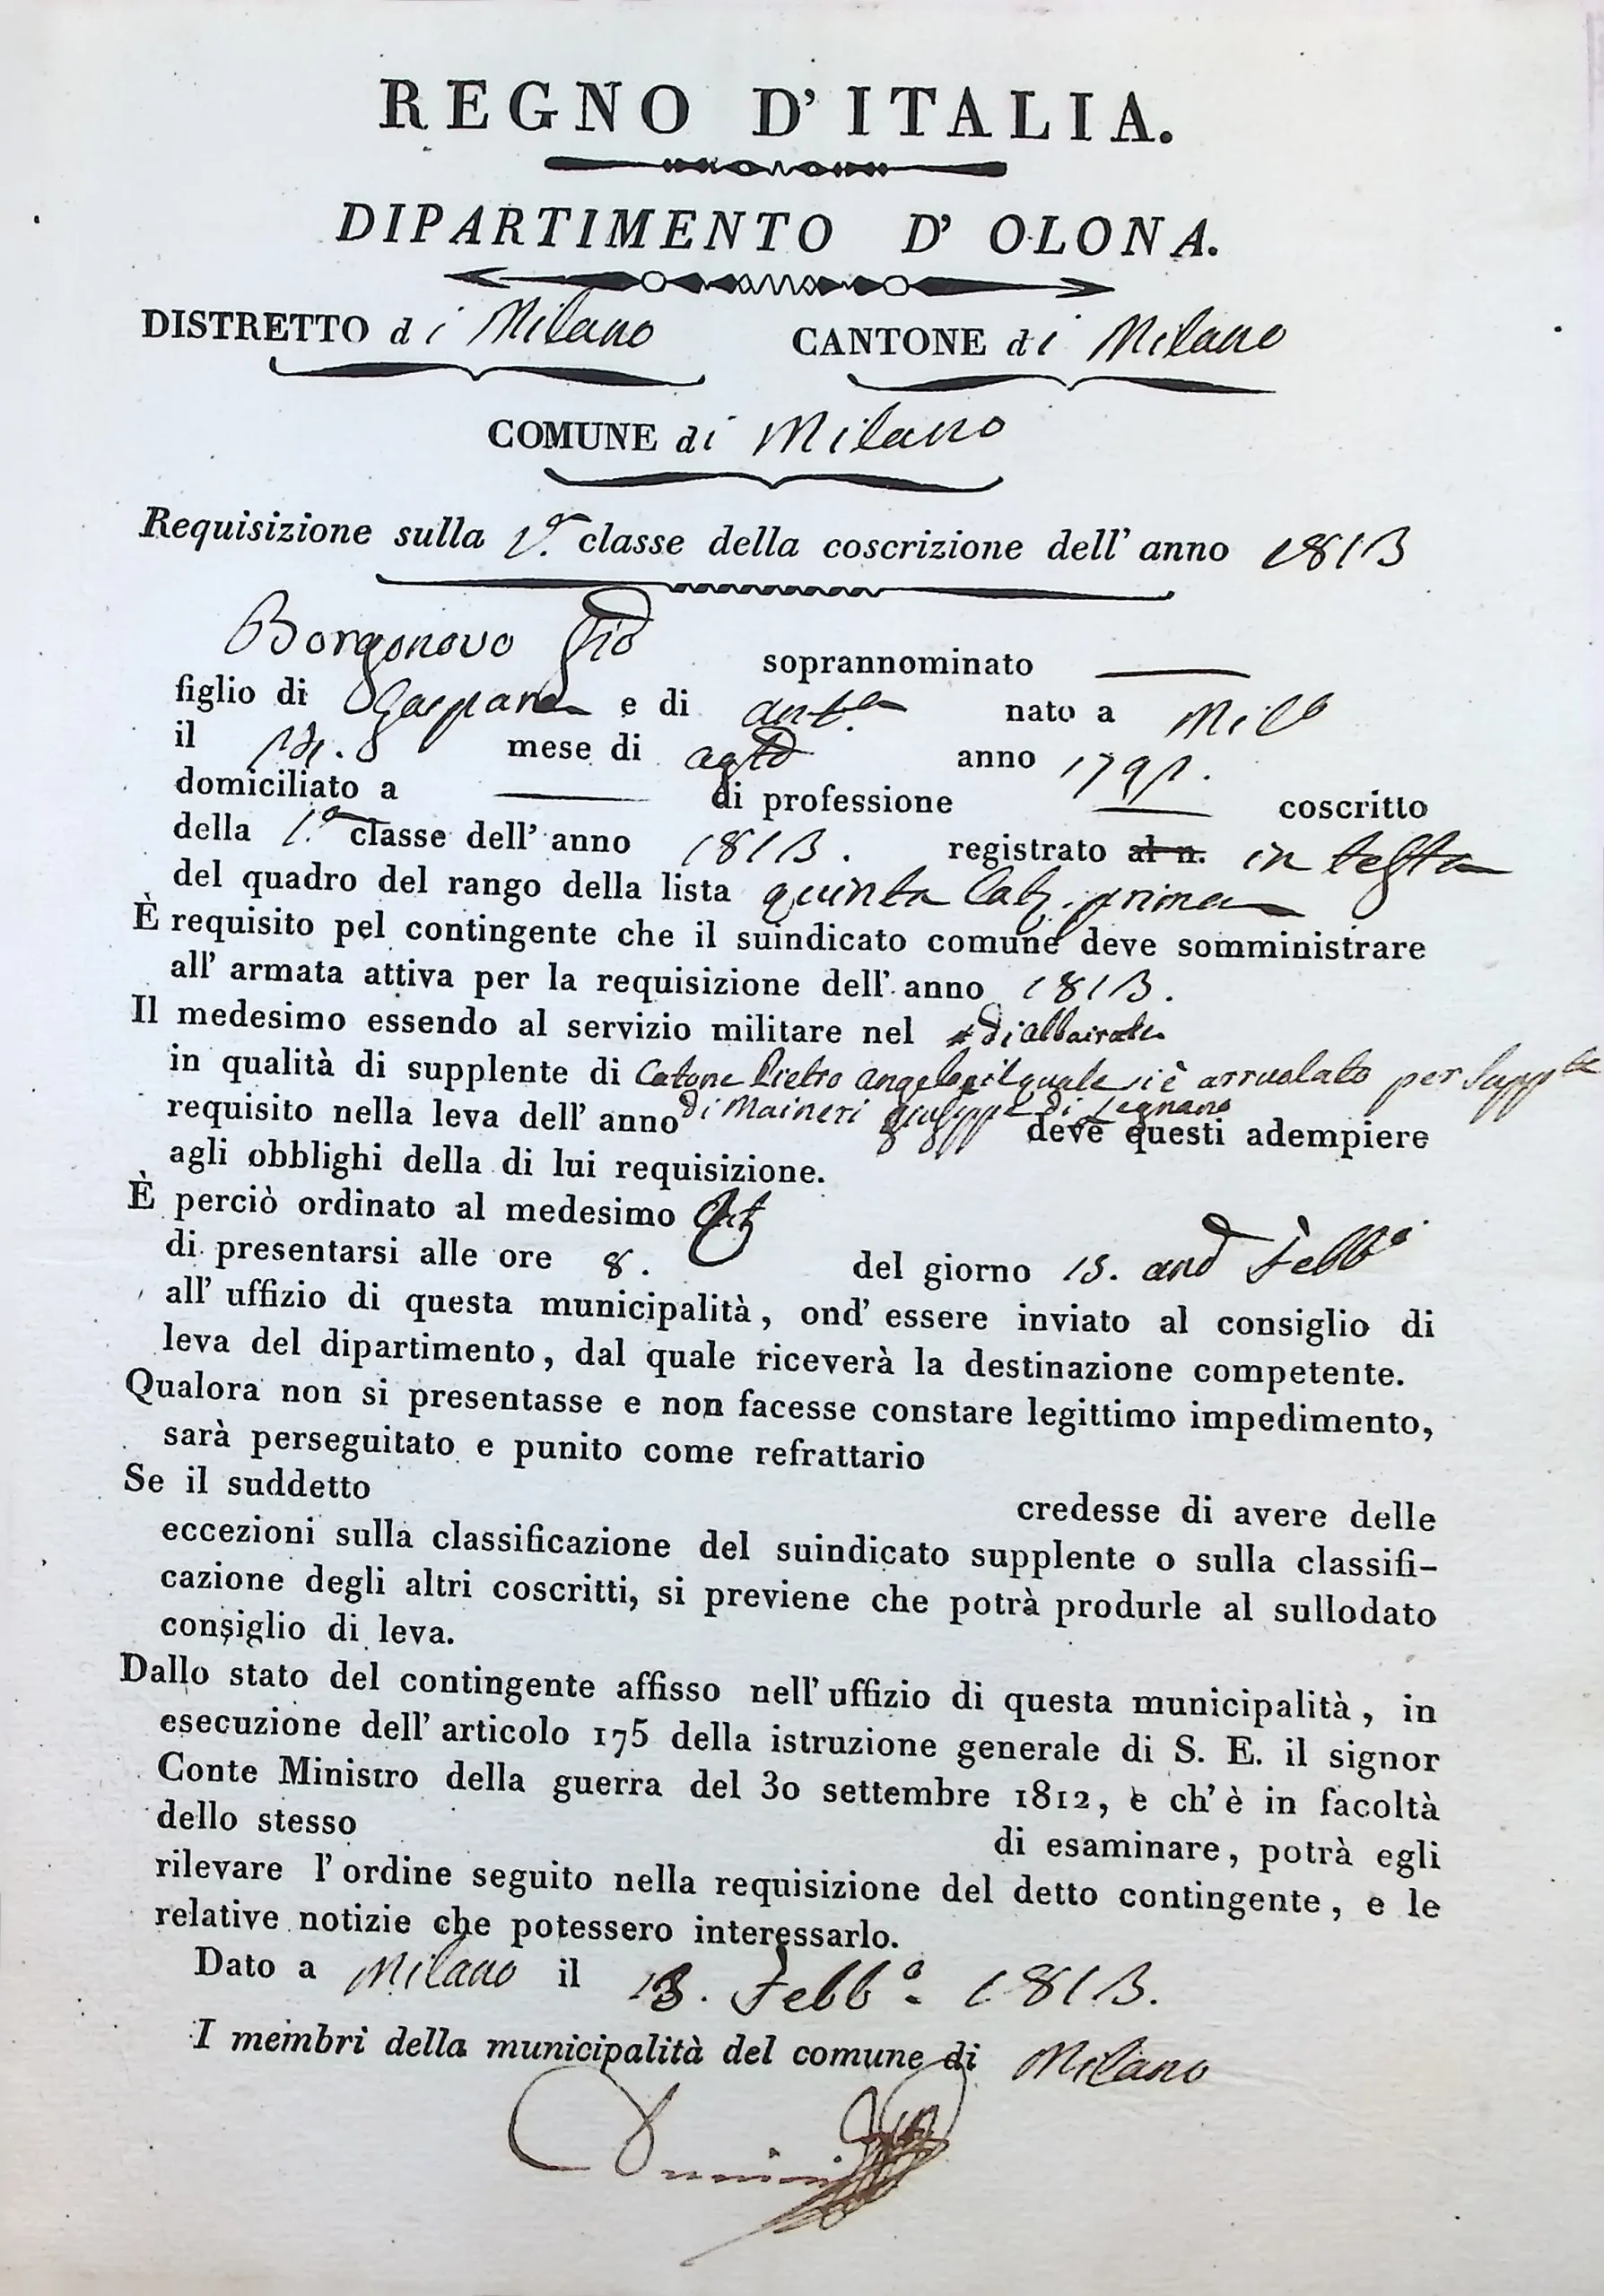 REGNO D' ITALIA.
DIPARTIMENTO D' OLONA.
DISTRETTO di Milano CANTONE di Milano
COMUNE di Milano
Requisizione sulla classe della coscrizione dell' anno 1813
Borgonovo Gio soprannominato
figlio di Gaspare e di Ant.a nato a Mil.o
il mese di agto anno 1791.
domiciliato a di professione coscritto
della 1.a classe dell' anno 1813. registrato al n. in testa
del quadro del rango della lista quinta prima
È requisito pel contingente che il suindicato comune deve somministrare
all' armata attiva per la requisizione dell' anno 1813.
Il medesimo essendo al servizio militare nel di Albairate
in qualità di supplente di Catone Pietro Angelo il quale si è arruolato per Suppte
di Maineri Giuseppe di Legnano
requisito nella leva dell' anno deve questi adempiere
agli obblighi della di lui requisizione.
È perciò ordinato al medesimo
di presentarsi alle ore 8. del giorno 15. and Febb.o
all' uffizio di questa municipalità, ond' essere inviato al consiglio di
leva del dipartimento, dal quale riceverà la destinazione competente.
Qualora non si presentasse e non facesse constare legittimo impedimento,
sarà perseguitato e punito come refrattario
Se il suddetto credesse di avere delle
eccezioni sulla classificazione del suindicato supplente o sulla classifi-
cazione degli altri coscritti, si previene che potrà produrle al sullodato
consiglio di leva.
Dallo stato del contingente affisso nell' uffizio di questa municipalità, in
esecuzione dell' articolo 175 della istruzione generale di S. E. il signor
Conte Ministro della guerra del 30 settembre 1812, e ch' è in facoltà
dello stesso di esaminare, potrà egli
rilevare l' ordine seguito nella requisizione del detto contingente, e le
relative notizie che potessero interessarlo.
Dato a Milano il 13. Febb.o 1813.
I membri della municipalità del comune di Milano